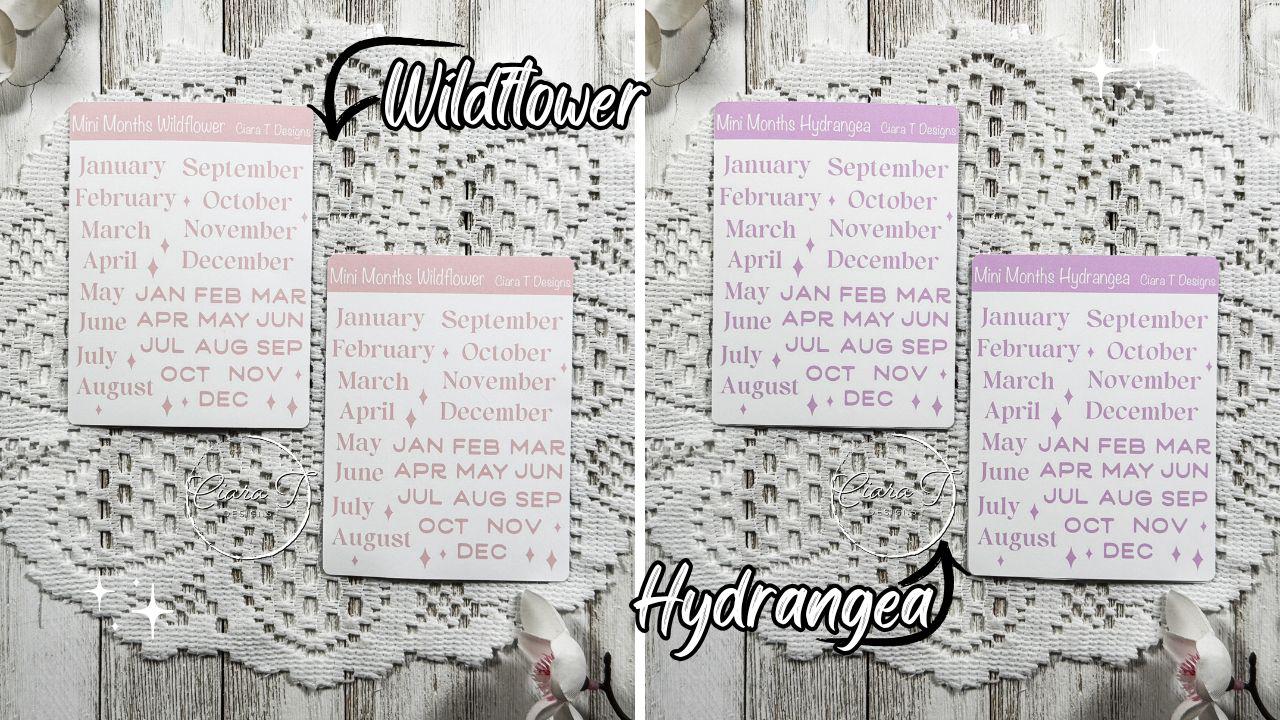 Wildflower
Mini Months Wildflower Ciara T Designs
January September
February October
March November
April December
May JAN FEB MAR
June APR MAY JUN
July JUL AUG SEP
August OCT NOV
DEC
Mini Months Wildflower Ciara T Designs
January September
February October
March November
April December
May JAN FEB MAR
June APR MAY JUN
July JUL AUG SEP
August OCT NOV
DEC
Ciara T
DESIGNS
Mini Months Hydrangea Ciara T Designs
January September
February October
March November
April December
May JAN FEB MAR
June APR MAY JUN
July JUL AUG SEP
August OCT NOV
DEC
Mini Months Hydrangea Ciara T Designs
January September
February October
March November
April December
May JAN FEB MAR
June APR MAY JUN
July JUL AUG SEP
August OCT NOV
DEC
Ciara T
DESIGNS
Hydrangea